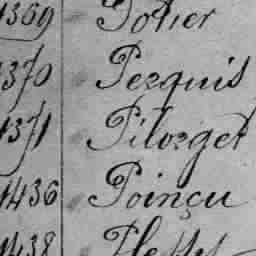 1369 Potier
1370 Perquis
1371 Pilorget
1436 Poinçu
1438